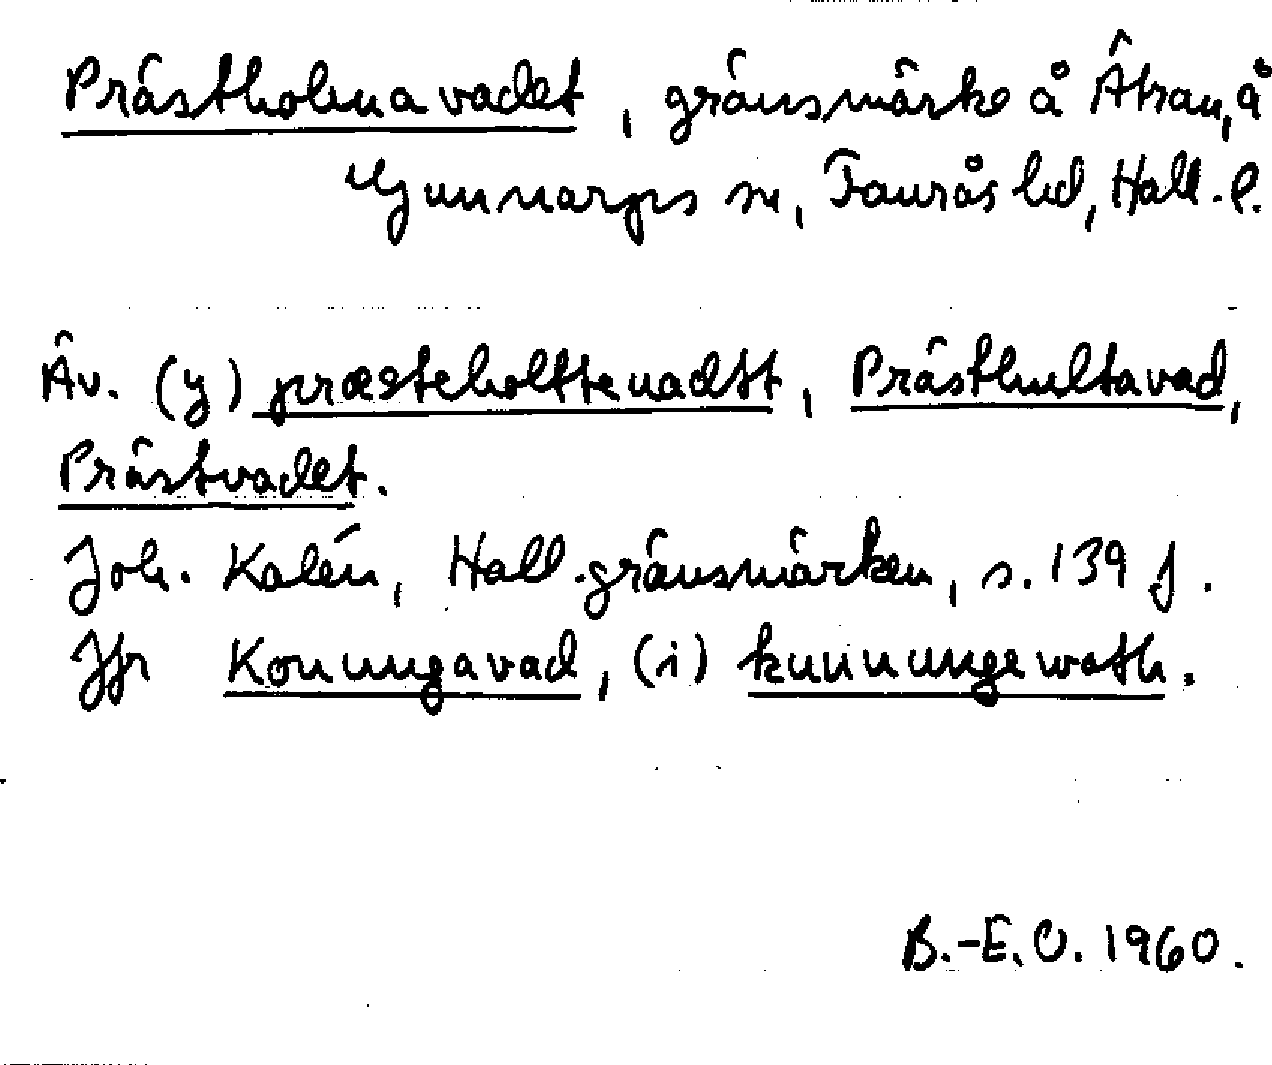 Prästholmavadet, gränsmärke å Ätran, å
Gunnarps sn, Faurås hd, Hall. l.
Äv. (y) præsteholtteuadtt, Prästhultavad,
Prästvadet.
Joh. Kalén, Hall. gränsmärken, s. 139 f.
Jfr Konungavad, (i) kunnungewath.
B.-E. O. 1960.